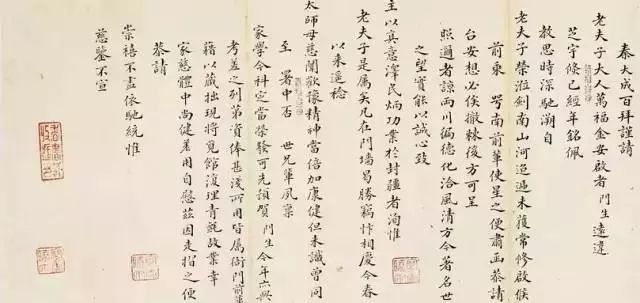 秦大成百拜謹請
老夫子大人萬福金安啟者門生遠違
芝宇倏已經年銘佩
教思時深馳溯自
老夫子榮涖劍南山河迢遞未獲常修啟候
前東粤南前輩使星之便肅函恭請
台安想必俟撤棘後方可呈
照適者諒西川偏德化洽風清方今著名世
之望實能以誠心致
主以真意澤民炳功業於封疆者洵惟
老夫子是屬矣凡在門墻曷勝竊忭相慶今春
以來遥稔
太師母慈闈歡豫精神當倍加康健但未識曾同
至署中否世兄輩夙禀
家學今科定當榮發可先預賀門生今年六典
考差之列第資俸甚淺所用皆属衙門前輩
藉以藏拙現將覓館復理青氈故業幸
家慈體中尚健差用自慰茲因走摺之便
恭請
崇禧不盡依馳統惟
慈鑒不宣